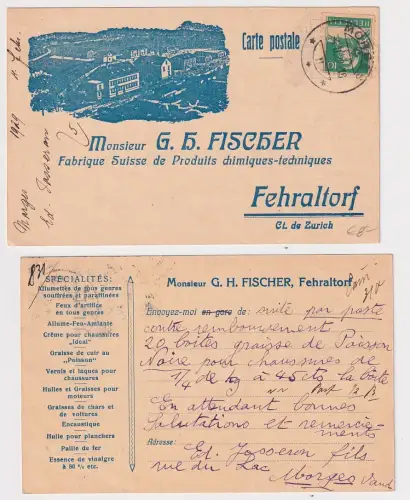 Carte postale
HELVETIA
10
Morges 1919 11 fév.
Ed. Josseron
Monsieur G. H. FISCHER
Fabrique Suisse de Produits chimiques-techniques
Fehraltorf
Ct. de Zurich
68-
SPÉCIALITÉS:
Allumettes de tous genres
souffrées et paraffinées
Feux d'artifice
en tous genres
Allume-Feu-Amiante
Crème pour chaussures
"Ideal"
Graisse de cuir au
"Poisson"
Vernis et laques pour
chaussures
Huiles et Graisses pour
moteurs
Graisses de chars et
de voitures
Encaustique
Huile pour planchers
Paille de fer
Essence de vinaigre
à 80 % etc.
Monsieur G. H. FISCHER, Fehraltorf.
Envoyez-moi en gare de suite par poste
contre remboursement
20 boites graisse de Poisson
Noire pour chaussures de
1/4 de kg à 45 cts la boîte
En attendant bonnes
Salutations et remercie-
ments
Adresse: Ed. Josseron fils
rue du Lac
Morges Vaud